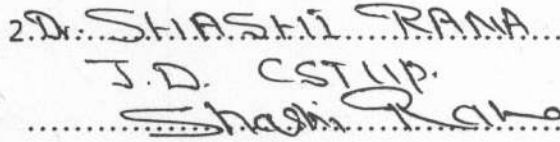 2. Dr. SHASHI RANA
J.D. CST UP.
Shashi Rana